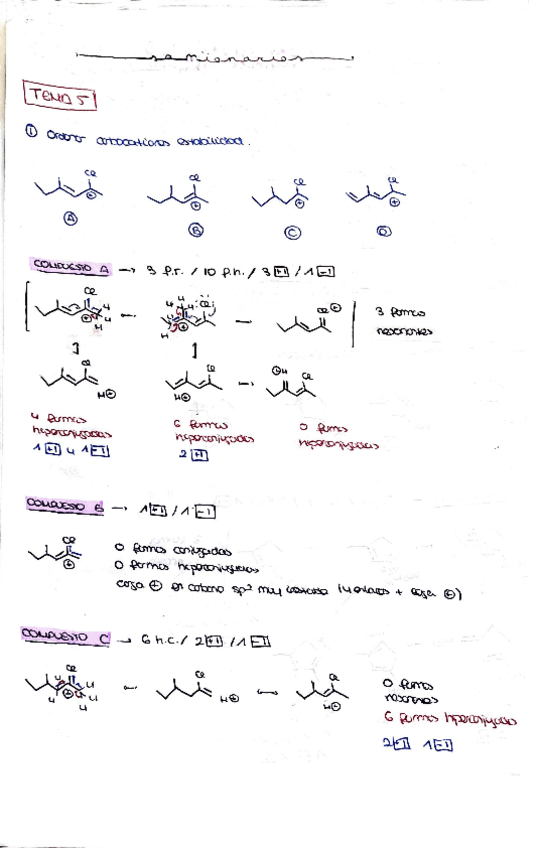 seminarios
TEMA 5
① Ordenar carbocationes estabilidad.
Cl Cl Cl Cl
⊕ ⊕ ⊕ ⊕
Ⓐ Ⓑ Ⓒ Ⓓ
COMPUESTO A → 3 f.r. / 10 f.h. / 3 +I / 1 -I
3 formas
resonantes
4 formas
hiperconjugadas
1 +I y 1 -I
6 formas
hiperconjugadas
2 +I
0 formas
hiperconjugadas
COMPUESTO B → 1 +I / 1 -I
0 formas conjugadas
0 formas hiperconjugadas
carga ⊕ en carbono sp² muy inestable (4 enlaces + carga ⊕)
COMPUESTO C → 6 h.c. / 2 +I / 1 -I
0 formas
resonantes
6 formas hiperconjugadas
2 +I 1 -I